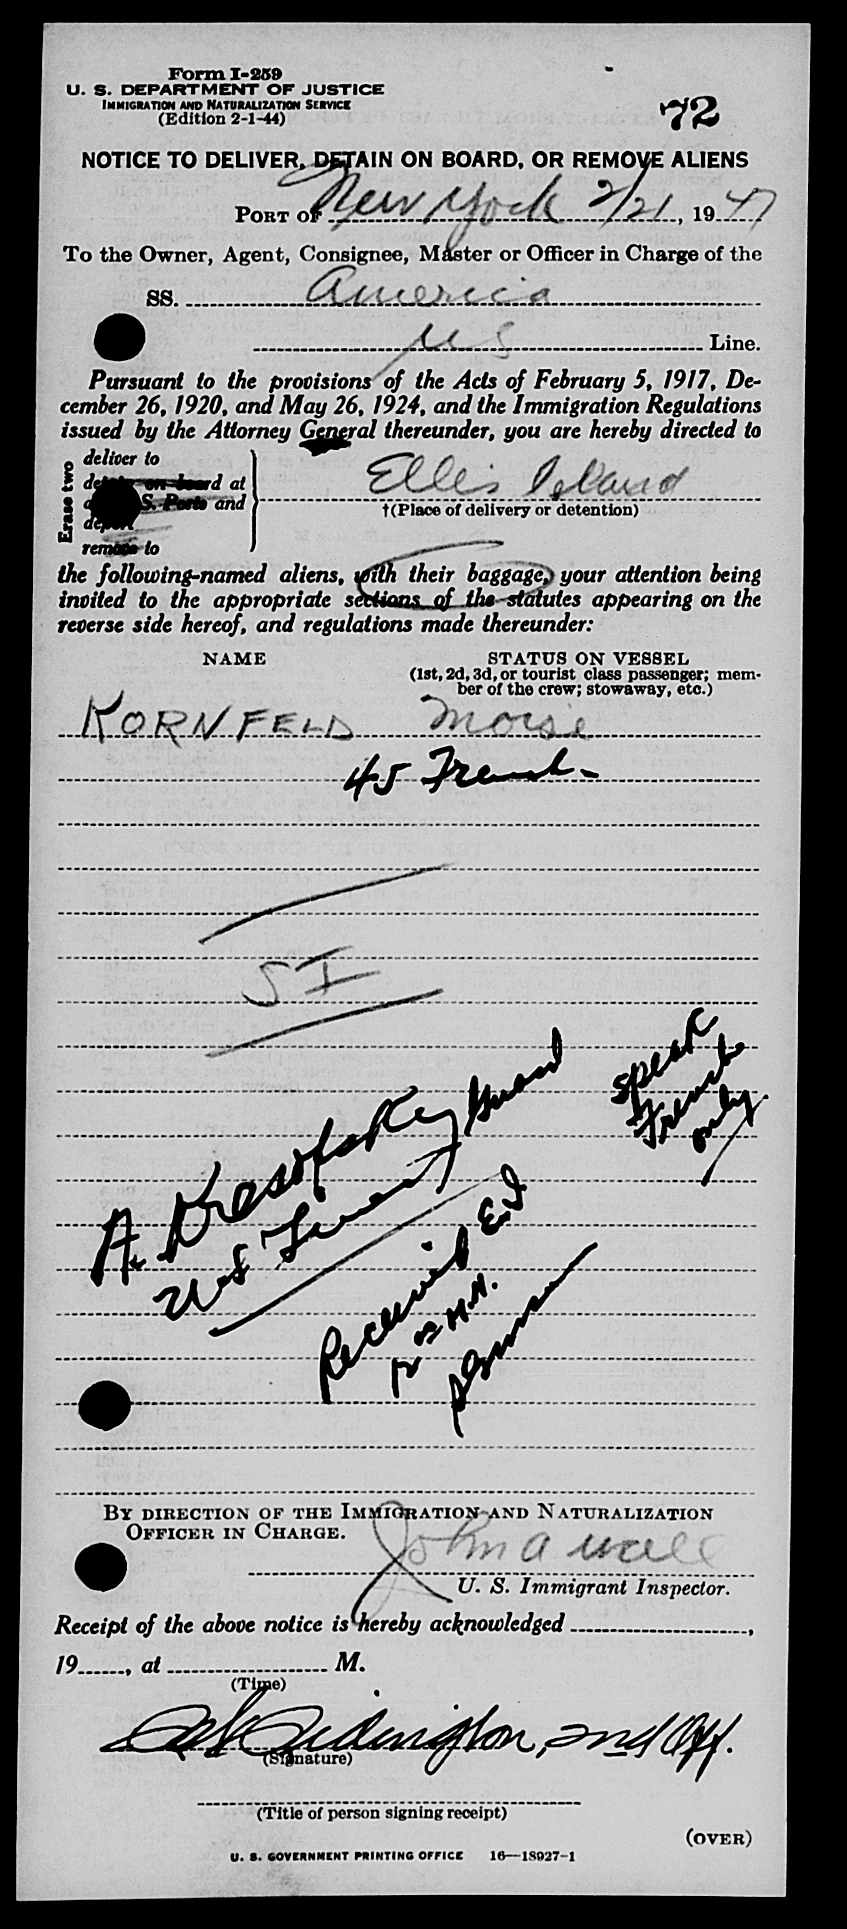 Form I-259
U. S. DEPARTMENT OF JUSTICE
IMMIGRATION AND NATURALIZATION SERVICE
(Edition 2-1-44)
72
NOTICE TO DELIVER, DETAIN ON BOARD, OR REMOVE ALIENS
PORT OF New York 2/21, 1947
To the Owner, Agent, Consignee, Master or Officer in Charge of the
SS. America
US Line.
Pursuant to the provisions of the Acts of February 5, 1917, De-
cember 26, 1920, and May 26, 1924, and the Immigration Regulations
issued by the Attorney General thereunder, you are hereby directed to
Erase two
deliver to
detain on board at
S. Ports and
deport
remove to
Ellis Island
†(Place of delivery or detention)
the following-named aliens, with their baggage, your attention being
invited to the appropriate sections of the statutes appearing on the
reverse side hereof, and regulations made thereunder:
NAME STATUS ON VESSEL
(1st, 2d, 3d, or tourist class passenger; mem-
ber of the crew; stowaway, etc.)
KORNFELD Moise
45 French
SI
speak
French
only
A. Krasofsky Guard
US Lines
Received EI
BY DIRECTION OF THE IMMIGRATION AND NATURALIZATION
OFFICER IN CHARGE.
John A Wall
U. S. Immigrant Inspector.
Receipt of the above notice is hereby acknowledged
19 , at M.
(Time)
2nd Off.
(Signature)
(Title of person signing receipt)
(OVER)
U. S. GOVERNMENT PRINTING OFFICE 16—18927-1